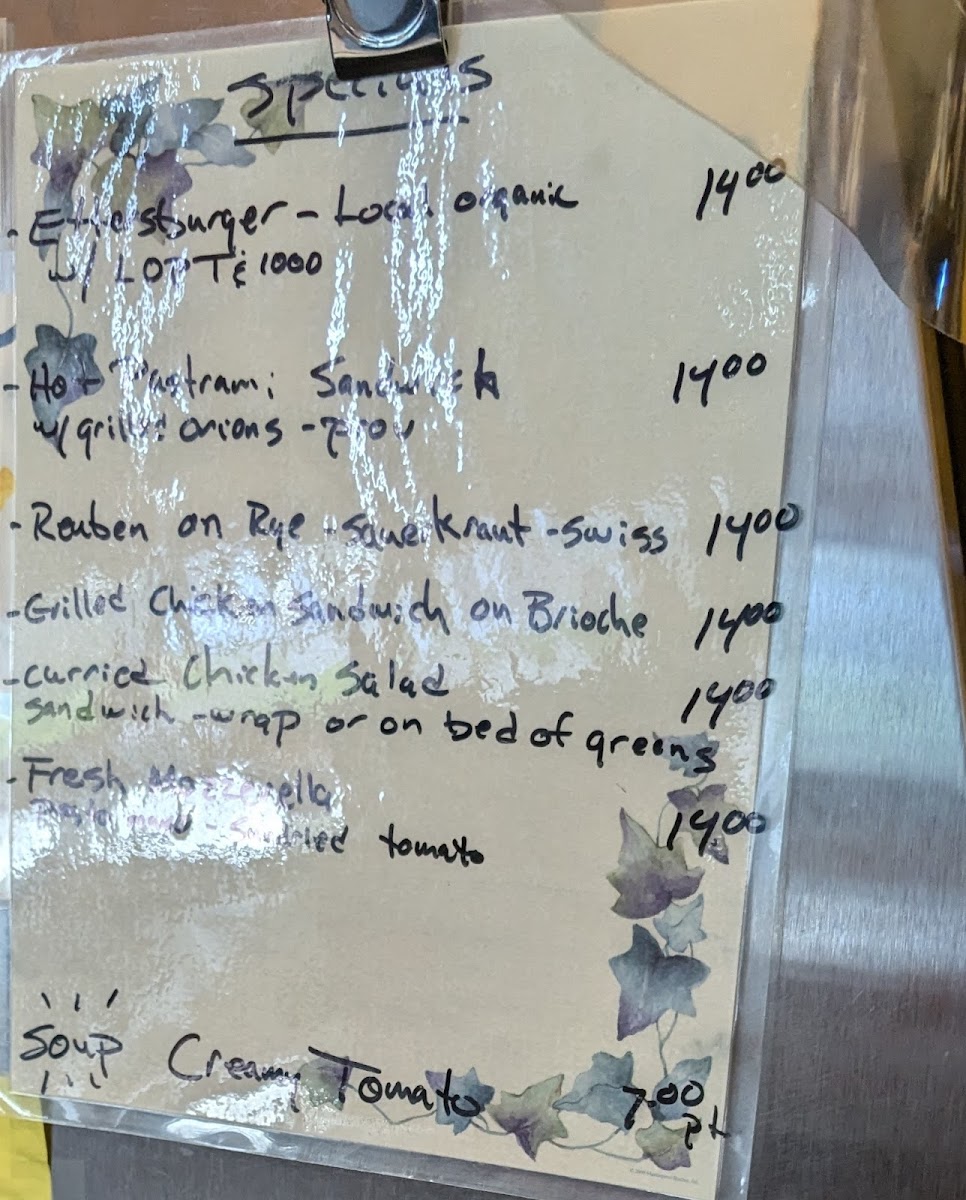 Specials
- Ettersburger - Local organic 14.00
w/ LOPT & 1000
- Hot Pastrami Sandwich 14.00
w/ grilled onions - prov
- Reuben on Rye - Sauerkraut - Swiss 14.00
- Grilled Chicken Sandwich on Brioche 14.00
- Curried Chicken Salad 14.00
Sandwich - wrap or on bed of greens
- Fresh Mozzerella 14.00
mayo - Sundried tomato
Soup Creamy Tomato 7.00
pt